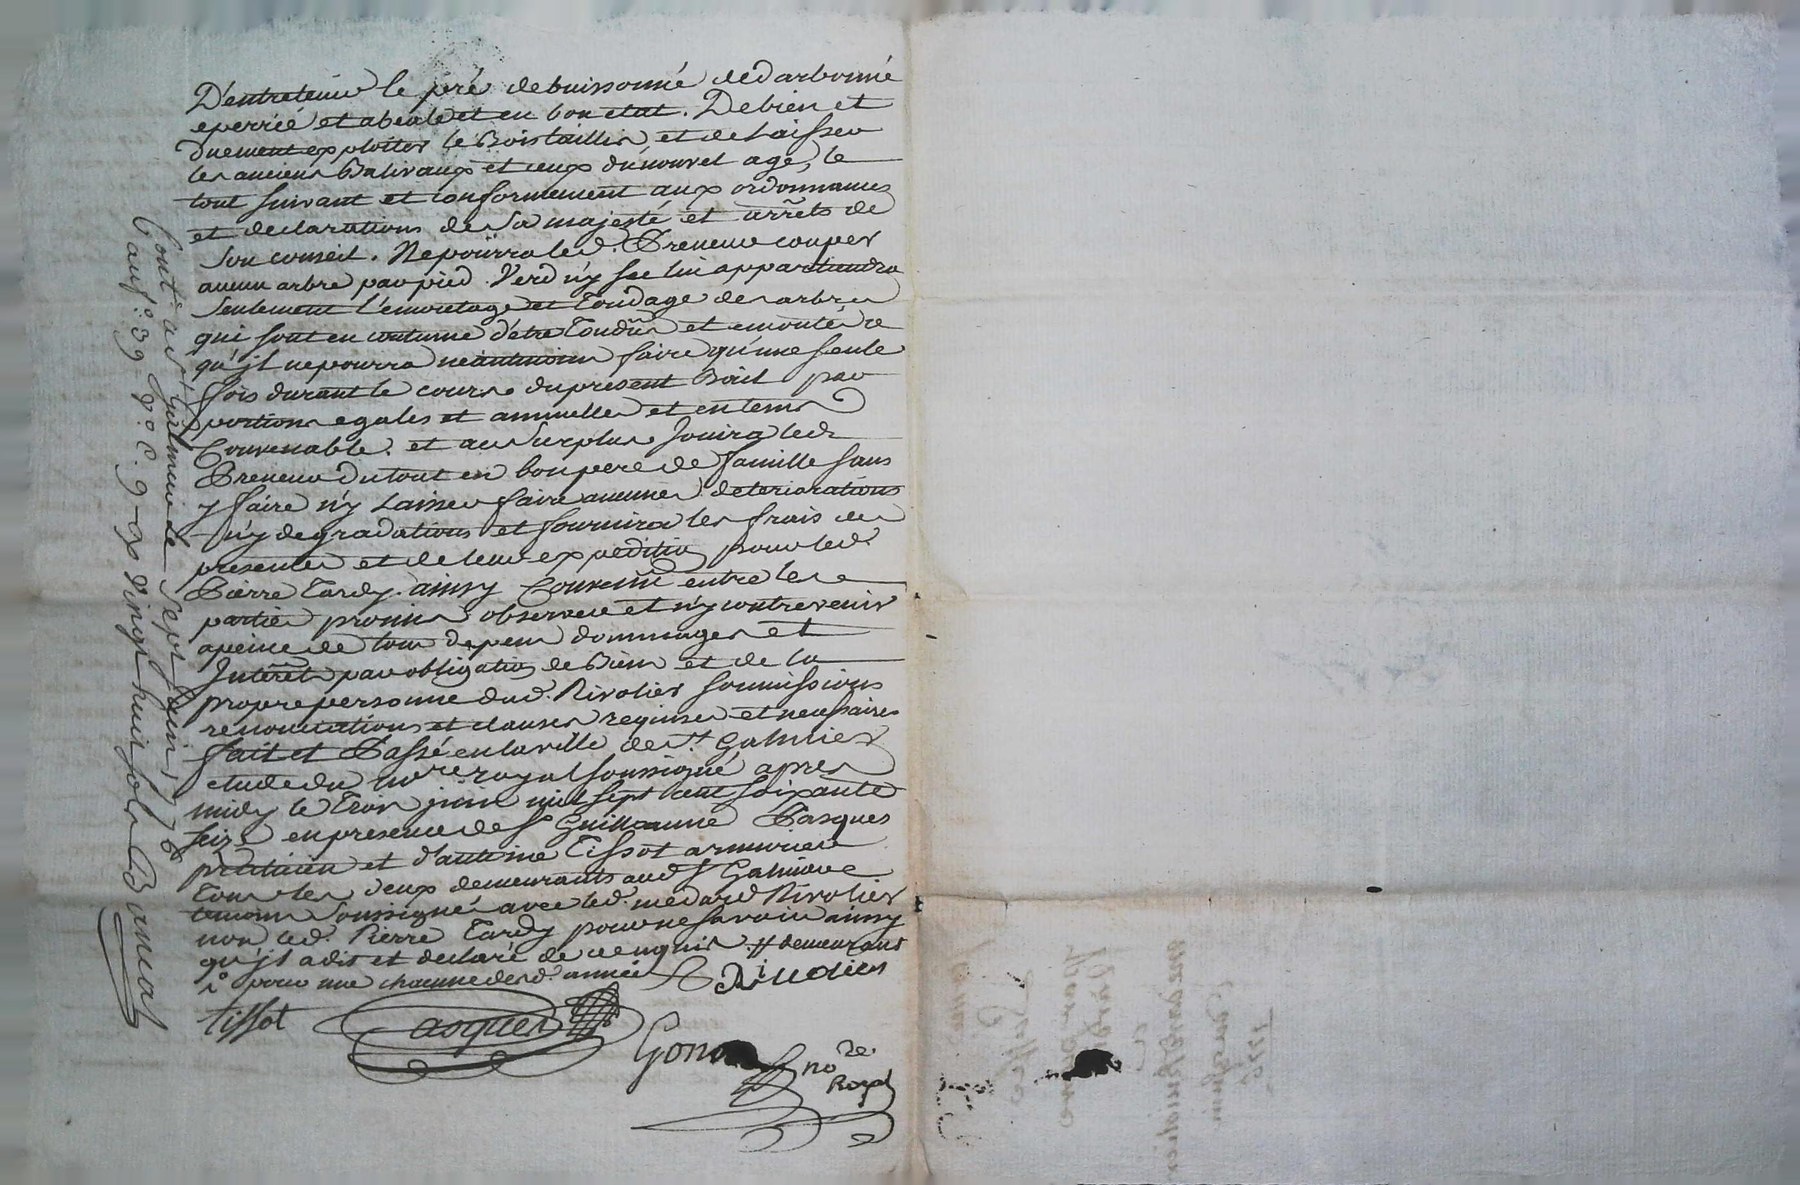 D'entretenir le pré debuissonné dedarbonné
eperrié et abealé et en bon etat. De bien et
duement exploiter le Bois taillis, et de laisser
les anciens Balivaux et ceux du nouvel age, le
tout suivant et conformement aux ordonnances
et declarations de Sa majesté et arrêts de
Son conseil. Ne pourra led. Preneur couper
aucun arbre par pied Verd n'y sec lui appartiendra
Seulement l'emoutage et Tondage des arbres
qui sont en coutume d'etre Tondus et emoutés ce
qu'jl ne pourra neantmoins faire qu'une seule
fois durant le cours du present Bail par
portions egales et annuelles et en tems
Convenable. et au Surplus Jouira led.
Preneur du tout en bon pere de famille sans
y faire n'y Laisser faire aucunes deteriorations
n'y degradations et fournira les frais des
presentes et de leur expedition pour led.
Pierre Tardy. ainsy Convenu entre les
parties promis observer et n'y contrevenir
apeine de tous depens dommages et
Interêts par obligation de Biens et de la
propre personne dud. Rivolier soumissions
renonciations et clauses requises et necessaires
fait et Passé en la ville de St. Galmier
etude du nore. royal soussigné apres
midy le Trois juin mil sept cent soixante
seize en presence de Sr Guillaume Pasques
praticien et d'antoine Tissot armurier
Tous les deux demeurants aud. St Galmier
temoins Soussignés avec led. medard Rivolier
non led. Pierre Tardy pour ne savoir ainsy
qu'jl a dit et declaré de ce enquis. // demeurant
pour une chacune desd. années
Rivolier
Tissot
Pasques
nore.
Royal
Cont. a St Galmier le Sept juin 176
39 Vo C. 9 Rx Vingt huit sols
1776